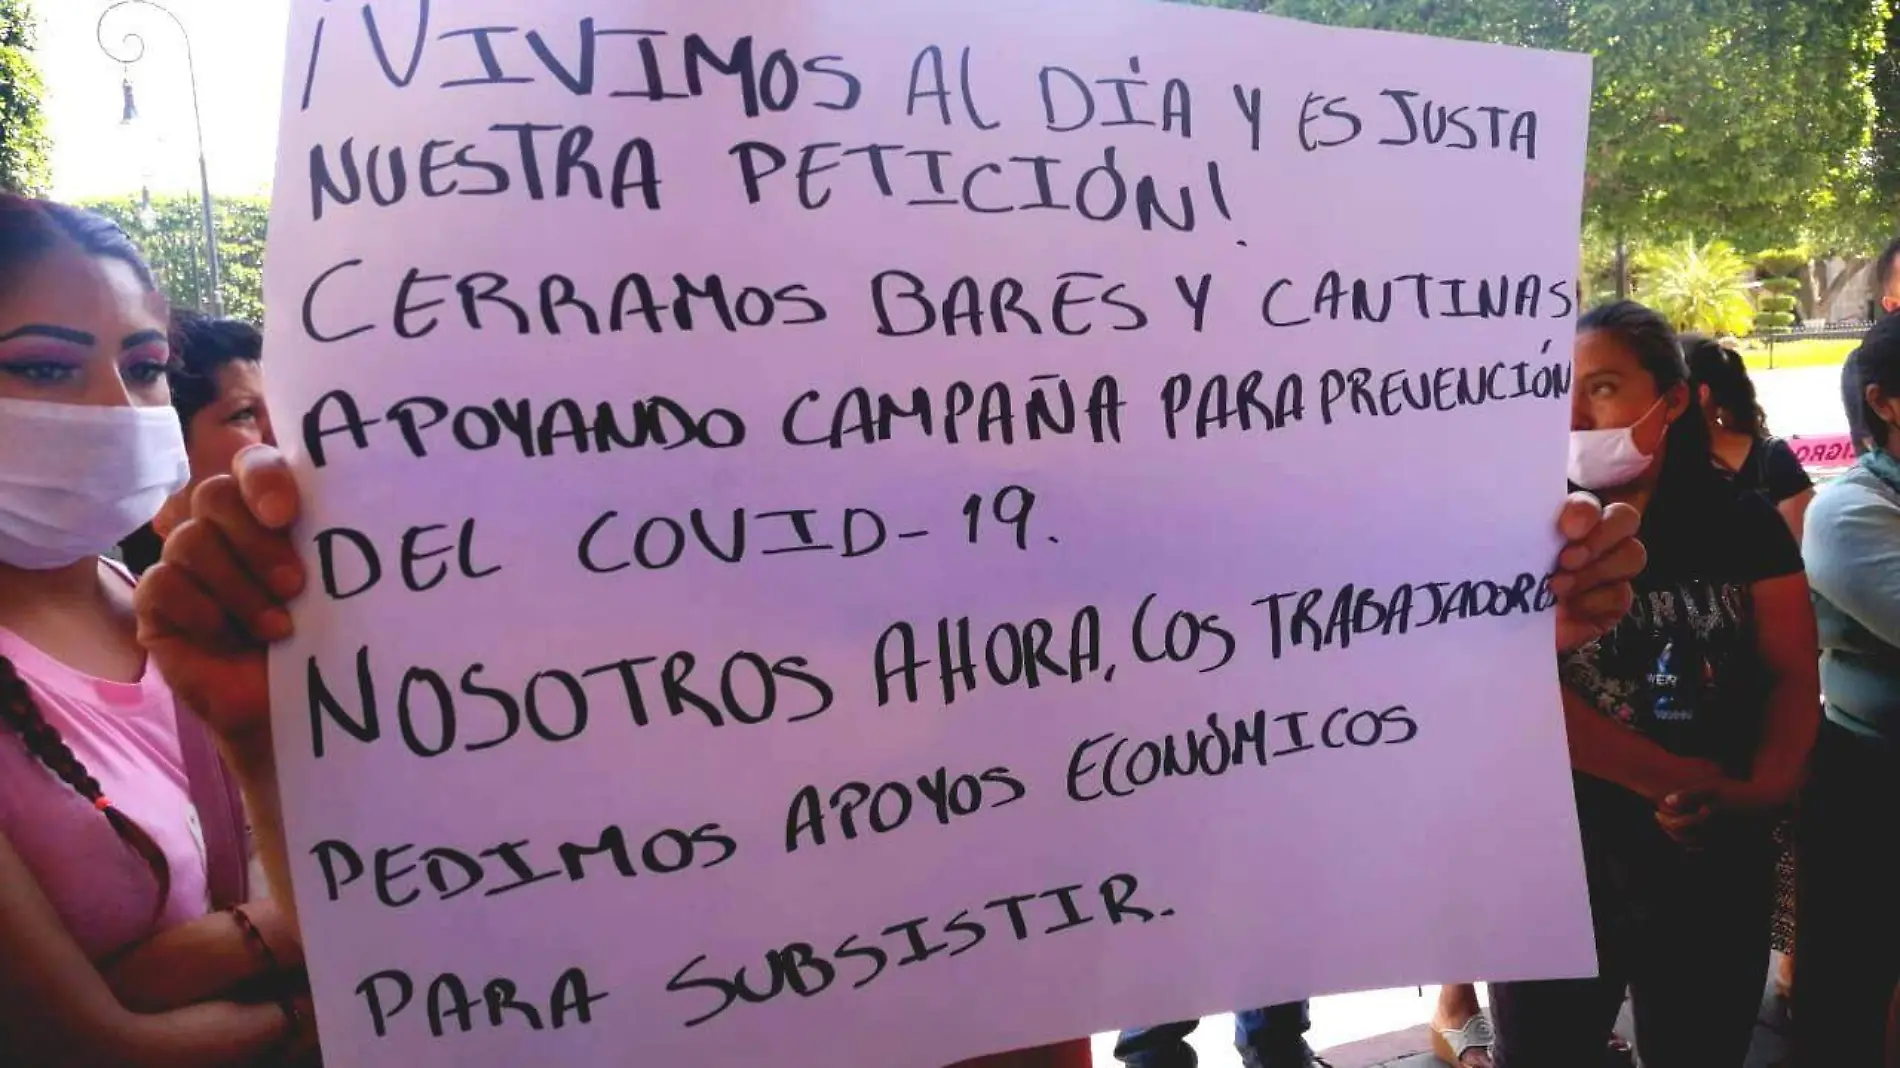 ¡VIVIMOS AL DÍA Y ES JUSTA
NUESTRA PETICIÓN!
CERRAMOS BARES Y CANTINAS
APOYANDO CAMPAÑA PARA PREVENCIÓN
DEL COVID-19.
NOSOTROS AHORA, LOS TRABAJADORES
PEDIMOS APOYOS ECONÓMICOS
PARA SUBSISTIR.